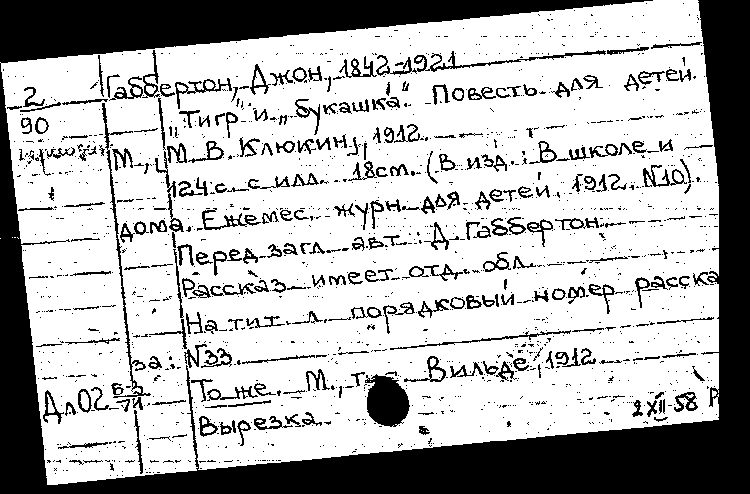 2 Габбертон, Джон, 1842-1921
90 „Тигр" и „Букашка". Повесть для детей.
М., [М. В. Клюкин], 1912.
124 с. с илл. 18см. (В изд.: В школе и
дома. Ежемес. журн. для детей. 1912. №10).
Перед загл. авт.: Д. Габбертон.
Рассказ имеет отд. обл.
На тит. л. порядковый номер расска
за: №33.
Дл02 Б-3/71 То же. М., Вильде, 1912.
Вырезка.
2 XII 58 Р